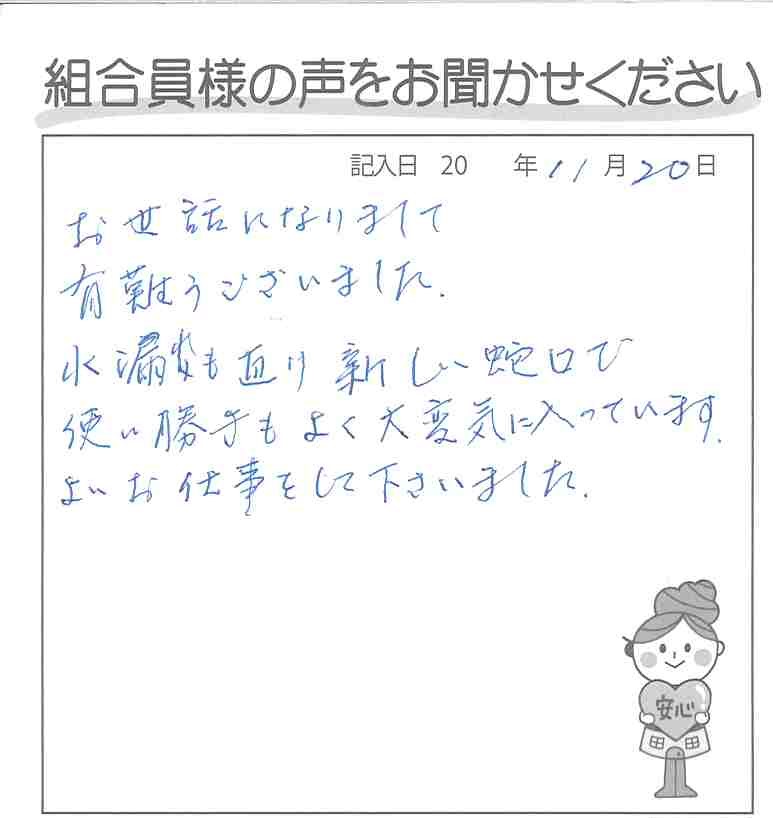 組合員様の声をお聞かせください
記入日 20 年 11 月 20 日
お世話になりまして
有難うございました.
水漏れも直り新しい蛇口で
使い勝手もよく大変気に入っています.
よいお仕事をして下さいました.
安心